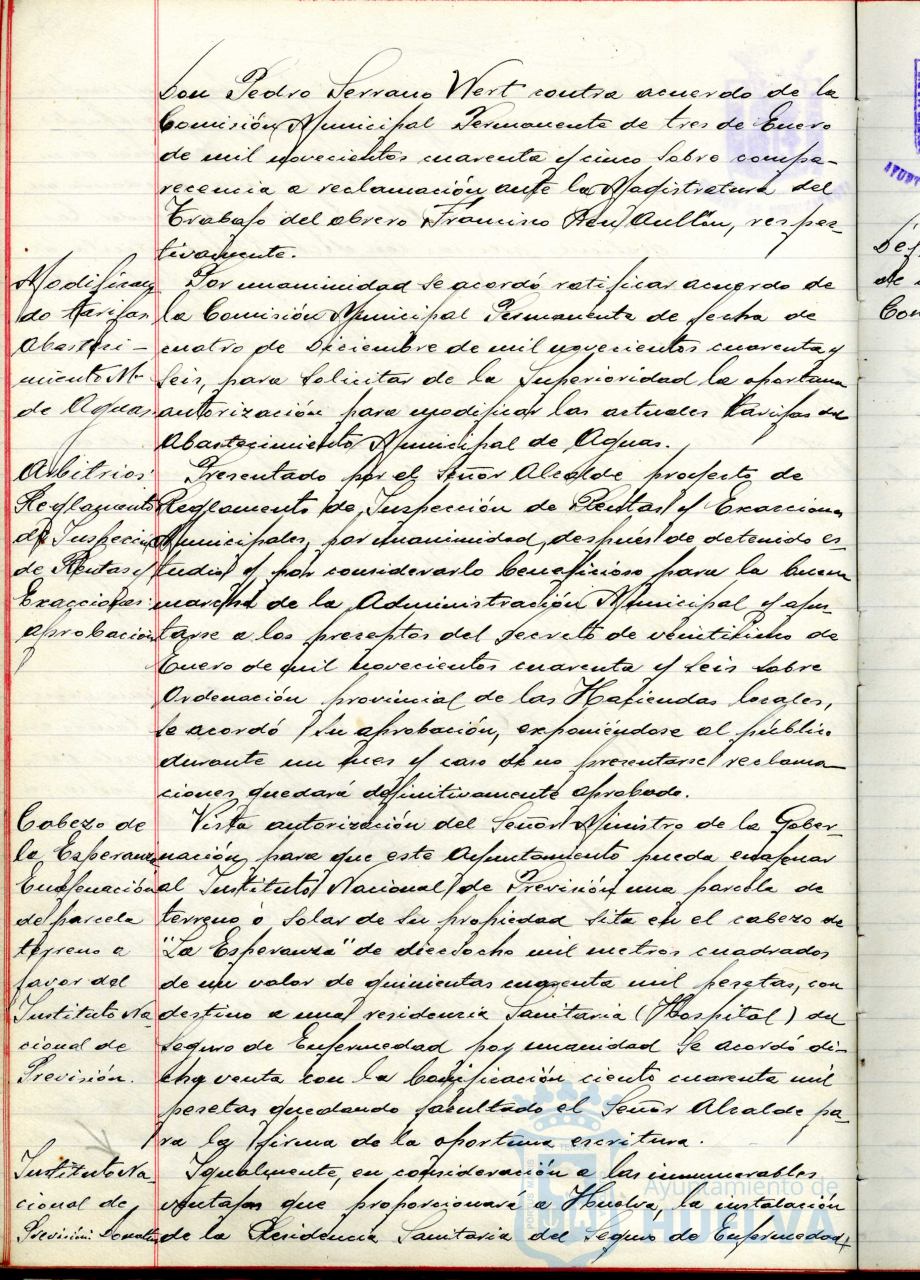 Don Pedro Serrano Wert contra acuerdo de la
Comisión Municipal Permanente de tres de Enero
de mil novecientos cuarenta y cinco sobre compa-
recencia a reclamación ante la Magistratura del
Trabajo del obrero Francisco Aullón, respec-
tivamente.
Modifican-
do tarifas
Abasteci-
miento M.
de Aguas
Por unaminidad se acordó ratificar acuerdo de
la Comisión Municipal Permanente de fecha de
cuatro de Diciembre de mil novecientos cuarenta y
seis, para solicitar de la Superioridad la oportuna
autorización para modificar las actuales tarifas del
Abastecimiento Municipal de Aguas.
Arbitrios:
Reglamento
de Inspección
de Rentas y
Exacciones:
aprobación
Presentado por el Señor Alcalde proyecto de
Reglamento de Inspección de Rentas y Exacciones
Municipales, por unanimidad, después de detenido es-
tudio y por considerarlo beneficioso para la buena
marcha de la Administración Municipal y ajus-
tarse a los preceptos del Decreto de veinticinco de
Enero de mil novecientos cuarenta y seis sobre
Ordenación provincial de las Haciendas locales,
se acordó su aprobación, exponiéndose al público
durante un mes y caso de no presentarse reclama-
ciones quedará definitivamente aprobado.
Cabezo de
la Esperanza
Enajenación
de parcela
terreno a
favor del
Instituto Na-
cional de
Previsión.
Vista autorización del Señor Ministro de la Gober-
nación para que este Ayuntamiento pueda enajenar
al Instituto Nacional de Previsión una parcela de
terreno ó solar de su propiedad sita en el cabezo de
"La Esperanza" de dieciocho mil metros cuadrados
de un valor de quinientas cuarenta mil pesetas, con
destino a una residencia Sanitaria (Hospital) del
Seguro de Enfermedad por unanidad se acordó di-
cha venta con la bonificación ciento cuarenta mil
pesetas quedando facultado el Señor Alcalde pa-
ra la firma de la oportuna escritura.
Instituto Na-
cional de
Previsión:
Igualmente, en consideración a las innumerables
ventajas que proporcionará a Huelva la instalación
de la Residencia Sanitaria del Seguro de Enfermedad,
Ayuntamiento de
HUELVA
de
Con